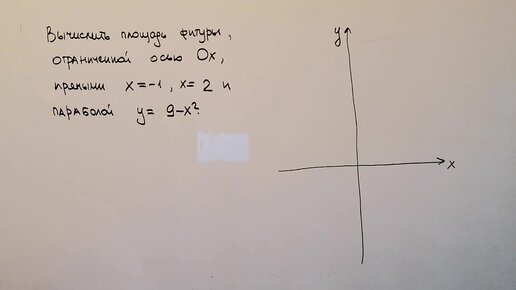 Вычислить площадь фигуры,
ограниченной осью Ox,
прямыми x=-1, x=2 и
параболой y=9-x².
y
x